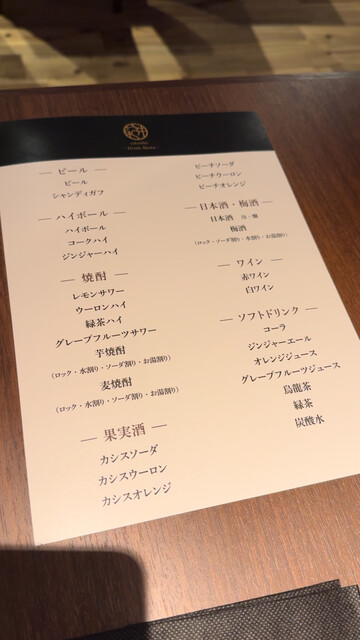 Drink Menu
― ビール ―
ビール
シャンディガフ
― ハイボール ―
ハイボール
コークハイ
ジンジャーハイ
― 焼酎 ―
レモンサワー
ウーロンハイ
緑茶ハイ
グレープフルーツサワー
芋焼酎
（ロック・水割り・ソーダ割り・お湯割り）
麦焼酎
（ロック・水割り・ソーダ割り・お湯割り）
― 果実酒 ―
カシスソーダ
カシスウーロン
カシスオレンジ
ピーチソーダ
ピーチウーロン
ピーチオレンジ
― 日本酒・梅酒 ―
日本酒 冷・燗
梅酒
（ロック・ソーダ割り・水割り・お湯割り）
― ワイン ―
赤ワイン
白ワイン
― ソフトドリンク ―
コーラ
ジンジャーエール
オレンジジュース
グレープフルーツジュース
烏龍茶
緑茶
炭酸水